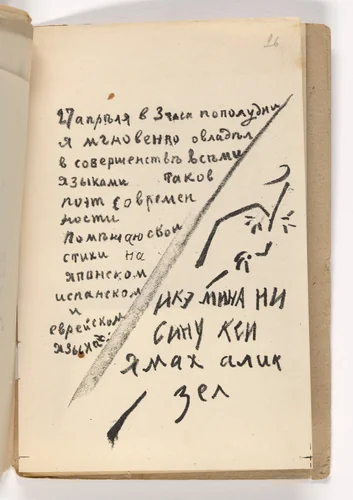 26
27 апрѣля в 3 часа пополудни
я мгновенно овладѣл
в совершенствѣ всѣми
языками Таков
поэт современ
ности
Помѣщаю свои
стихи на
японском
испанском
и
еврейском
языках
икэ мина ни
сину кси
ямах алик
зел